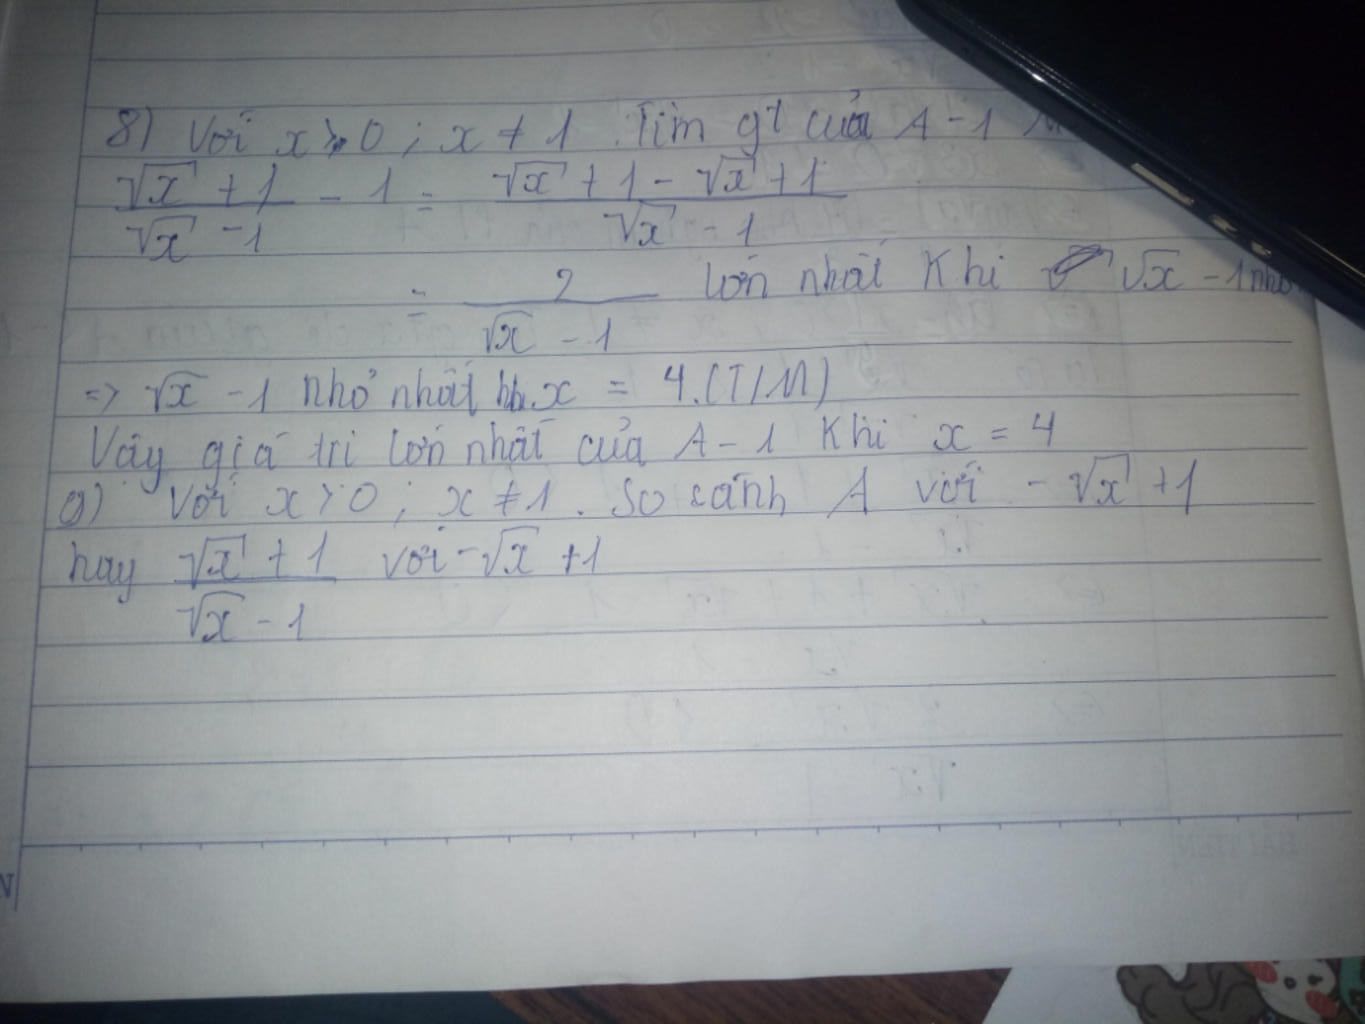 8) Với x > 0 ; x ≠ 1 . Tìm gt của A - 1
(√x + 1)/(√x - 1) - 1 = (√x + 1 - √x + 1)/(√x - 1)
= 2/(√x - 1) lớn nhất Khi √x - 1
=> √x - 1 nhỏ nhất x = 4. (T/M)
Vậy giá trị lớn nhất của A - 1 Khi x = 4
9) Với x > 0 ; x ≠ 1 . So sánh A với - √x + 1
hay (√x + 1)/(√x - 1) với - √x + 1